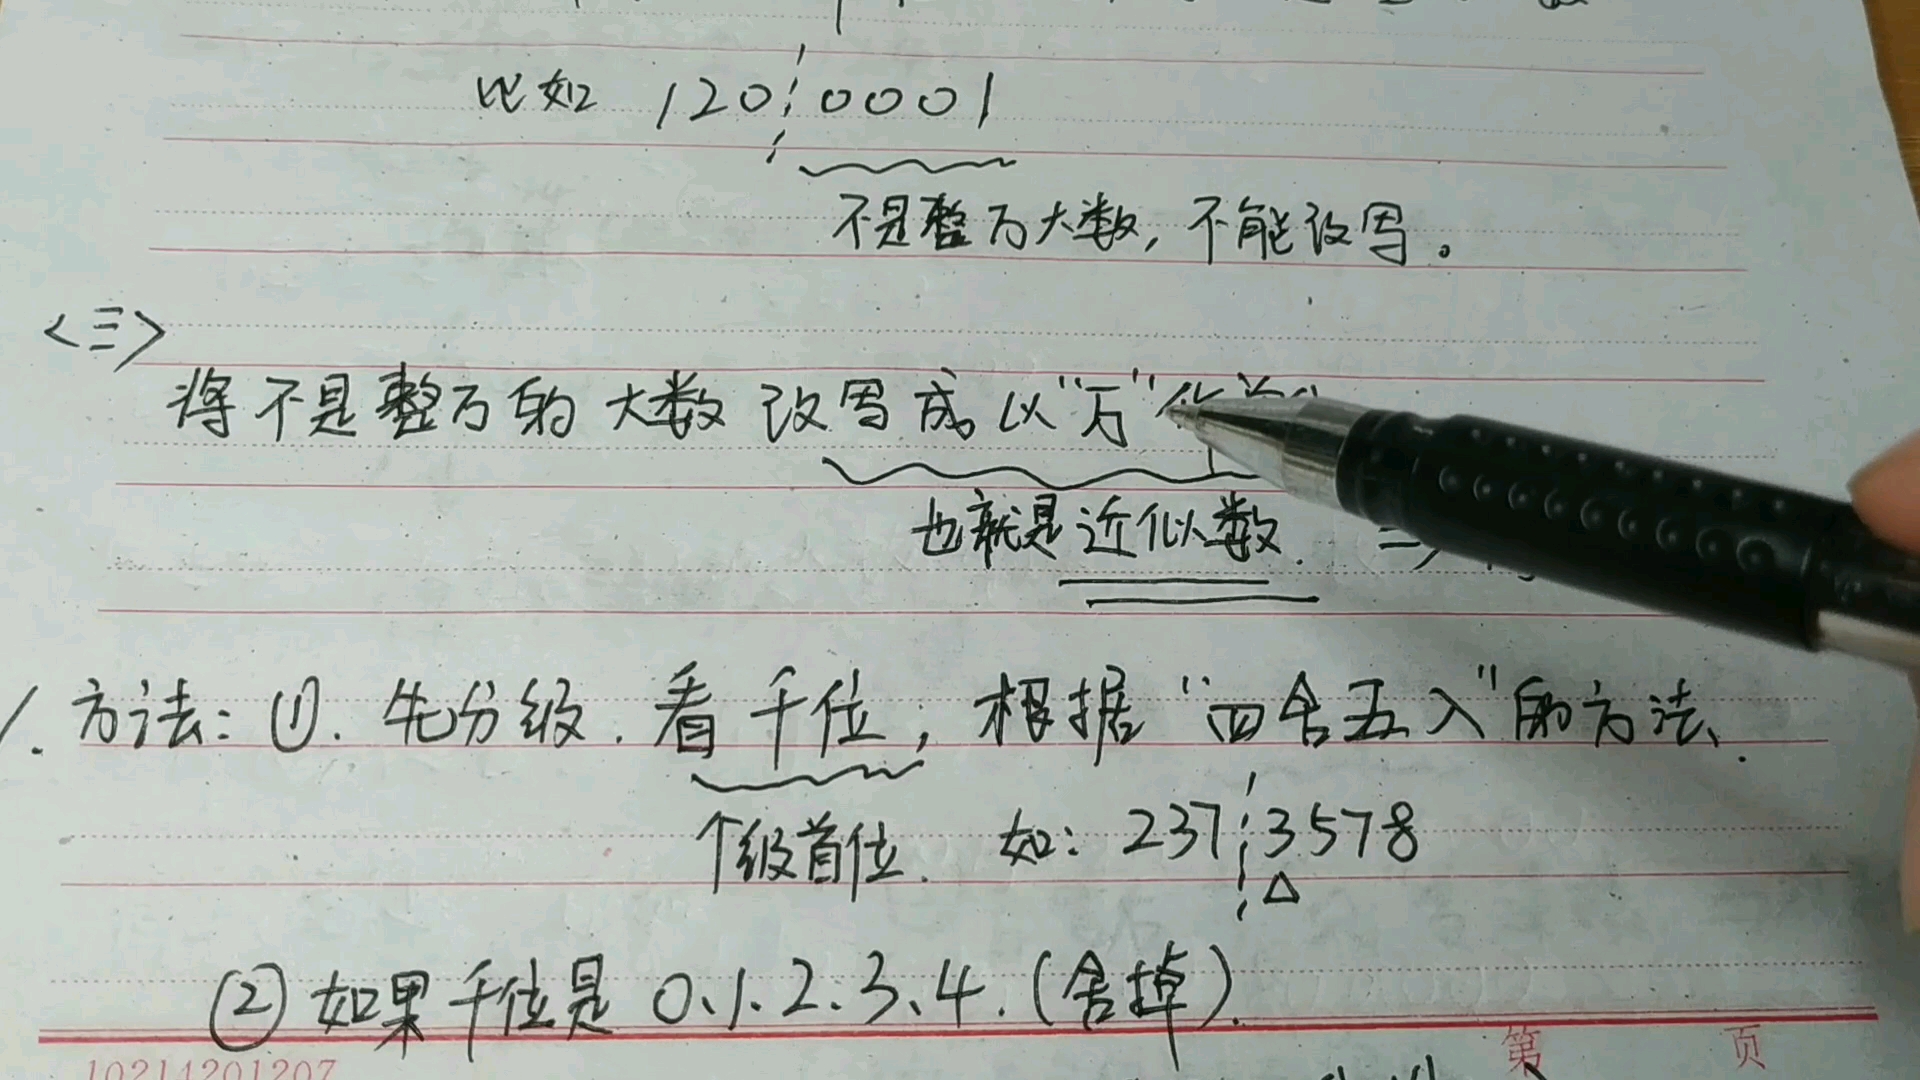 比如 120¦0001
不是整万大数,不能改写。
<三>
将不是整万的大数改写成以"万"作单
也就是近似数.
1. 方法: ①. 先分级. 看千位, 根据"四舍五入"的方法.
个级首位. 如: 237¦3578
△
② 如果千位是 0、1、2、3、4. (舍掉).
10214201207
第 页